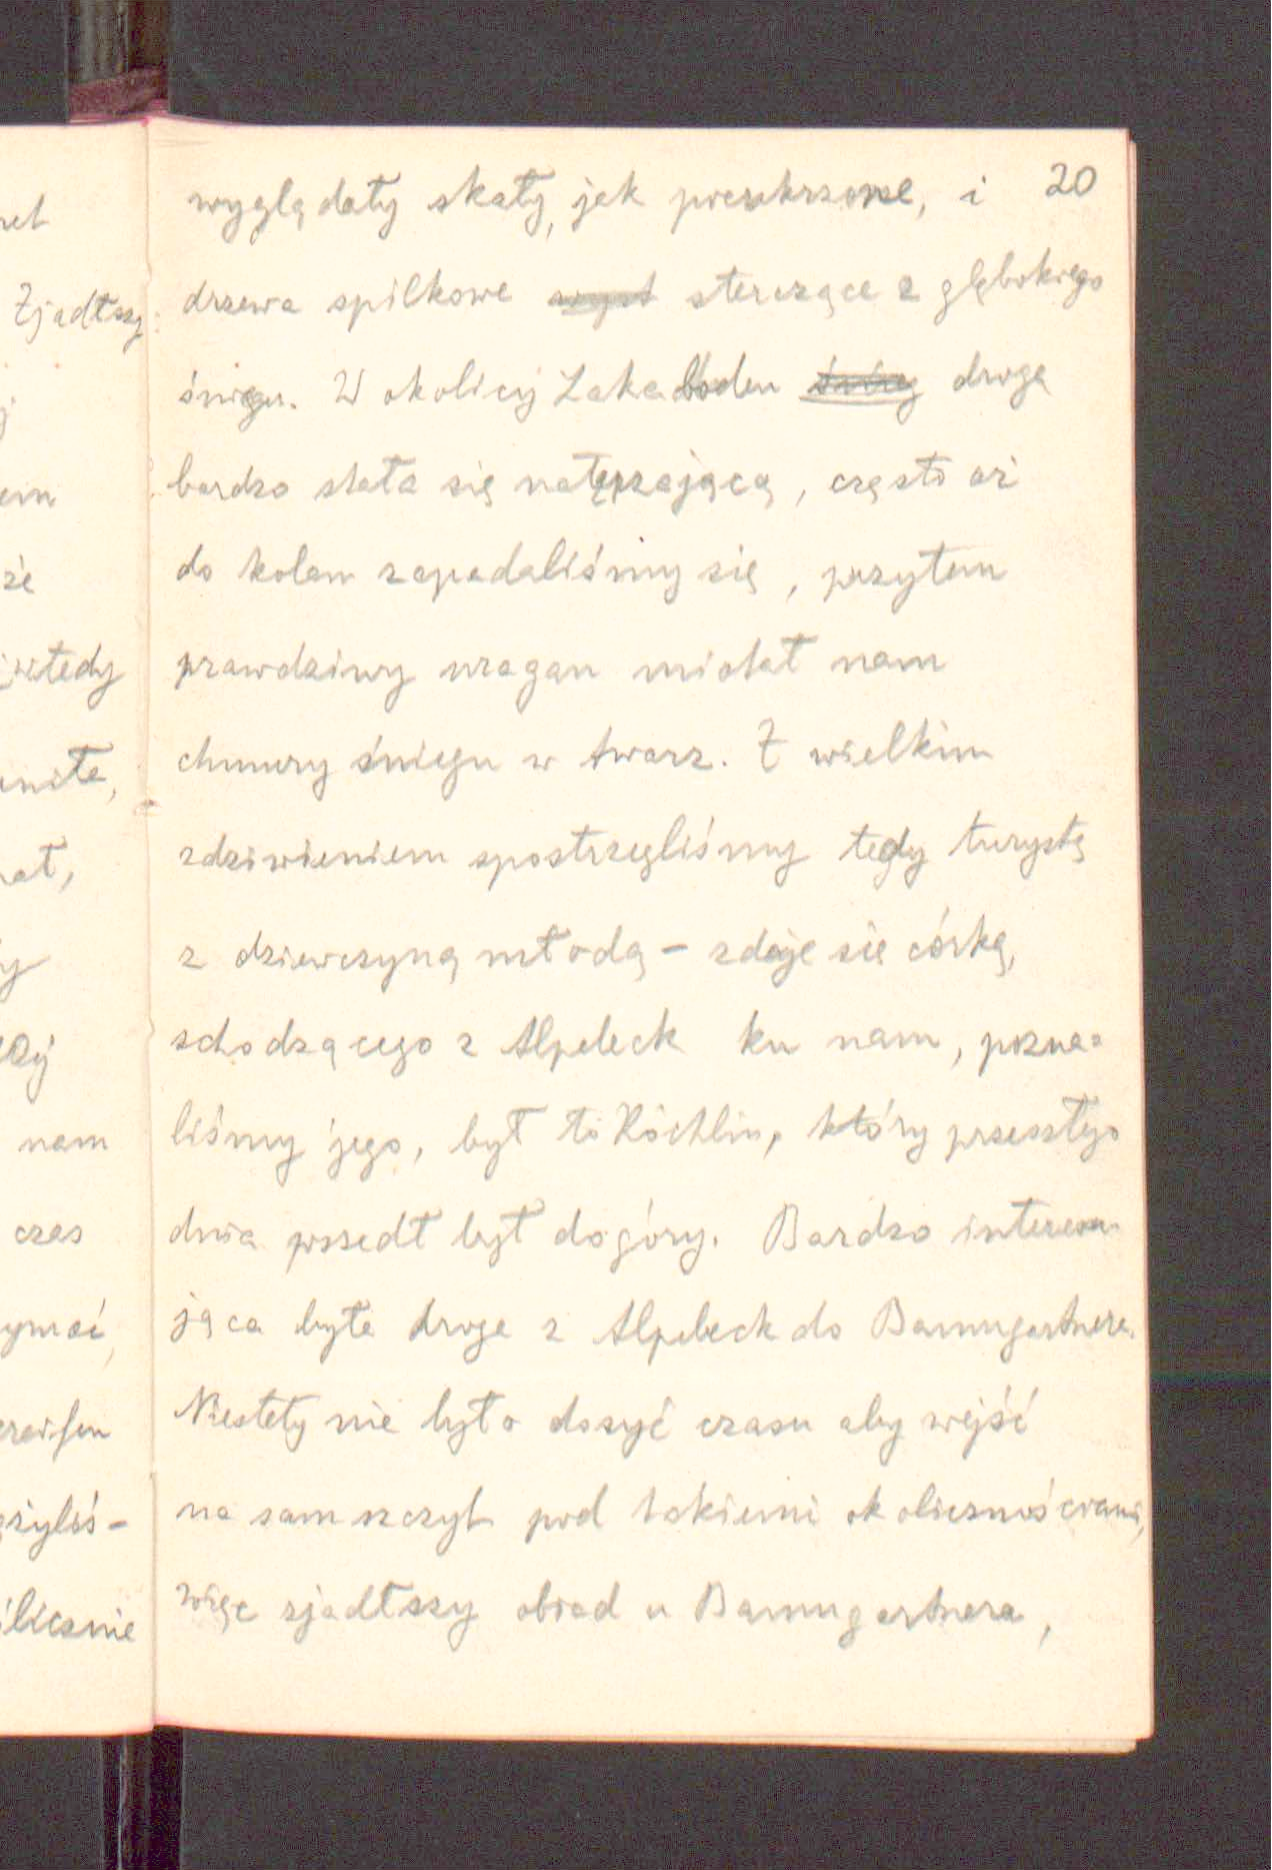 20
wyglądały skały, jak pocukrzone, i
drzewa spilkowe sterczące z głębokiego
śniegu. W okolicy Lakaboden droga
bardzo stała się natężającą, często aż
do kolan zapadaliśmy się, przytem
prawdziwy uragan miotał nam
chmury śniegu w twarz. Z wielkim
zdziwieniem spostrzegliśmy tedy turystę
z dziewczyną młodą – zdaje się córką,
schodzącego z Alpeleck ku nam, pozna=
liśmy jego, był to Köchlin, który przeszłego
dnia poszedł był dogóry. Bardzo interesu-
jąca była droga z Alpeleck do Baumgartnera.
Niestety nie było dosyć czasu aby wejść
na sam szczyt pod takiemi okolicznościami,
więc zjadłszy obiad u Baumgartnera,
Zjadłszy
wtedy
nam
czas